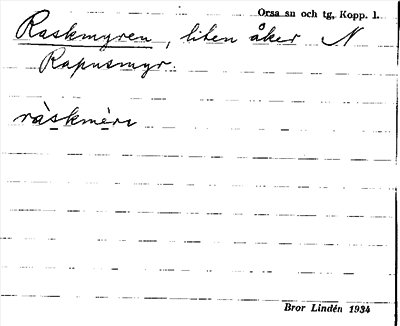 Orsa sn och tg, Kopp. l.
Raskmyren, liten åker N
Rapusmyr.
ràskmèrɩ
Bror Lindén 1934